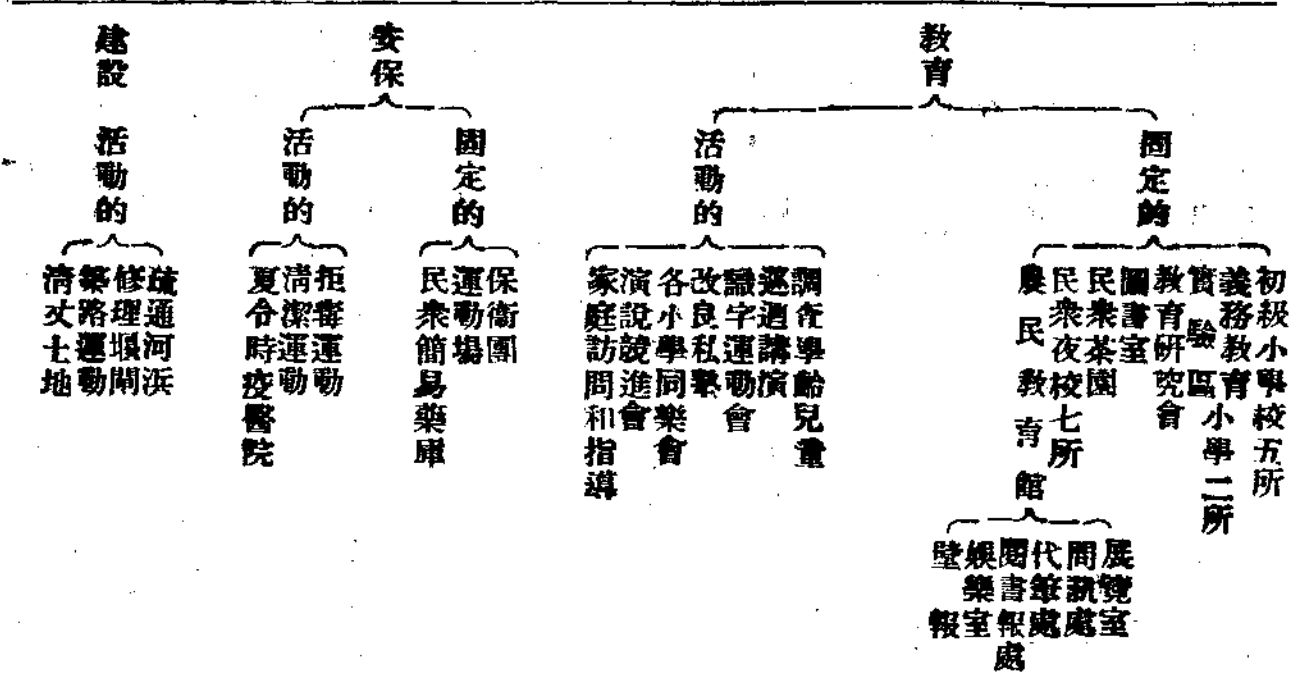 教育
固定的
初級小學校五所
義務教育
實驗區小學二所
教育研究會
圖書室
民衆茶園
民衆夜校七所
農民教育館
展覽室
問訊處
代筆處
閱書報處
娛樂室
壁報
活動的
調查學齡兒童
巡迴講演
識字運動會
改良私塾
各小學同樂會
演說競進會
家庭訪問和指導
安保
固定的
保衛團
運動場
民衆簡易藥庫
活動的
拒毒運動
清潔運動
夏令時疫醫院
建設
活動的
疏通河浜
修理堰閘
築路運動
清丈土地